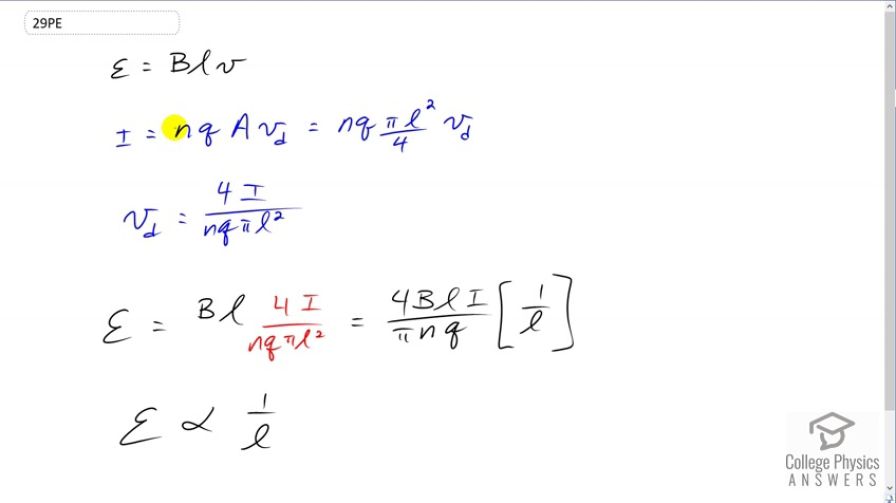 29PE
ε = Blv
I = nqAv_d = nq πl²/4 v_d
v_d = 4I/nqπl²
ε = Bl 4I/nqπl² = 4BlI/πnq [1/l]
ε ∝ 1/l
College Physics
ANSWERS